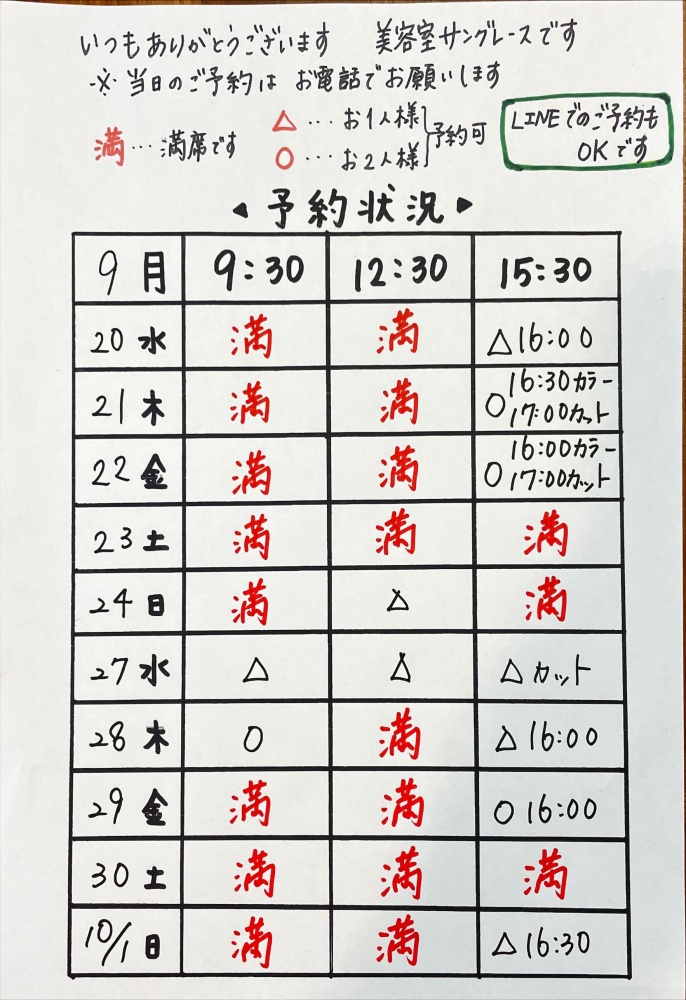 いつもありがとうございます 美容室サングレースです
※当日のご予約は お電話でお願いします
満…満席です
△…お1人様
○…お2人様
予約可
LINEでのご予約も
OKです
◀予約状況▶
9月 9:30 12:30 15:30
20水 満 満 △16:00
21木 満 満 ○16:30カラー
17:00カット
22金 満 満 ○16:00カラー
17:00カット
23土 満 満 満
24日 満 △ 満
27水 △ △ △カット
28木 ○ 満 △16:00
29金 満 満 ○16:00
30土 満 満 満
10/1日 満 満 △16:30